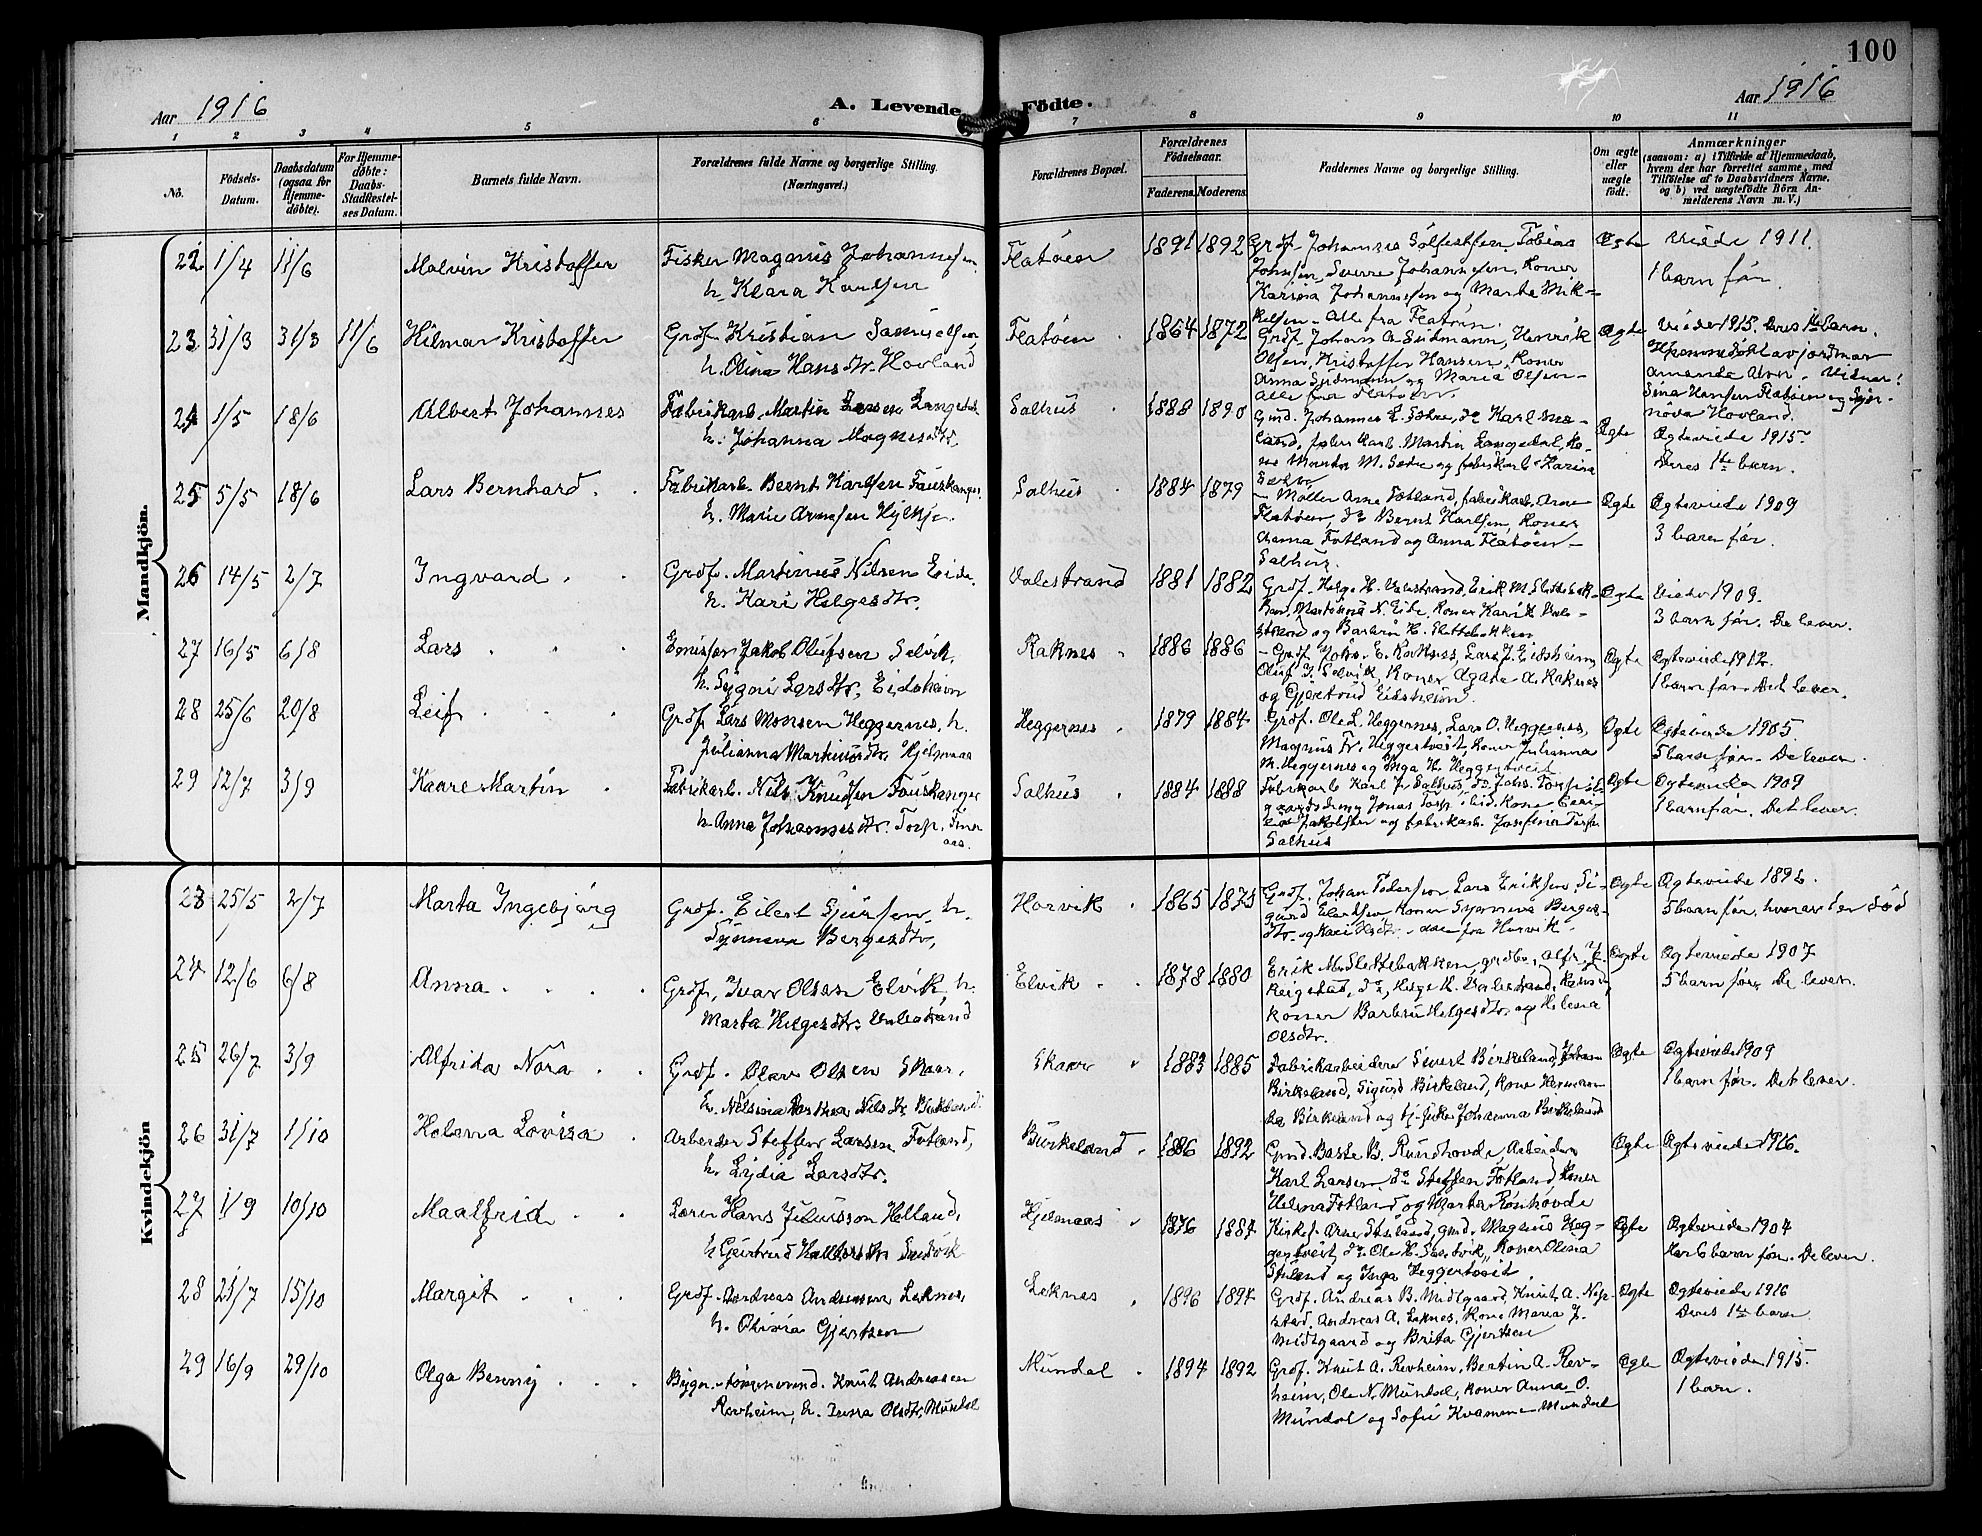 100
Aar 1916
A. Levende Födte.
Aar 1916
1 2 3 4 5 6 7 8 9 10 11
No.
Födsels-Datum.
Daabsdatum (ogsaa for Hjemme-döbte).
For Hjemme-döbte: Daabs-Stadfæstel-ses Datum.
Barnets fulde Navn.
Forældrenes fulde Navne og borgerlige Stilling.
(Næringsvei.)
Forældrenes Bopæl.
Forældrenes Födselsaar.
Faderens. Moderens.
Faddernes Navne og borgerlige Stilling.
Om ægte eller uægte födt.
Anmærkninger
(saasom: a) i Tilfælde af Hjemmedaab,
hvem der har forrettet samme, med
Tilföielse af to Daabsvidners Navne,
og b) ved uægtefödte Börn An-
melderens Navn m. V.)
Mandkjön.
22 1/4 11/6 Malvin Kristoffer
Fisker Magnus Johannesen
h. Klara Karlsen
Flatöen 1891 1892
Grdf. Johannes Sölfestsen, Tobias
Johnsen, Sverre Johannesen, Koner
Karina Johannesen og Marta Mik-
kelsen – Alle fra Flatöen.
Ægte
Viede 1911.
1 barn för.
23 31/3 31/3 11/6 Hilmar Kristoffer
Grdf. Kristian Samuelsen
h. Olina Hansdtr. Hovland
Flatöen 1864 1872
Grdf. Johan A. Sudmann, Henrik
Olsen, Kristoffer Hansen, Koner
Anna Sudmann og Maria Olsen –
Alle fra Flatöen.
Ægte
Viede 1915. Deres 1te barn.
Hjemmedöbt av jordmor
Sina Hansen Flatöen og
Hovland.
24 1/5 18/6 Albert Johannes
Fabrikarb. Martin Larsen
h. Johanna Magnesdtr.
Salhus 1888 1890
Martin Langedal
Ægte
Ægteviede 1915
Deres 1te barn.
25 5/5 18/6 Lars Bernhard
Fabrikarb. Bernt Karlsen Fauskanger
h. Marie Arnesen Hylkje.
Salhus 1884 1879
Möller Arne Fotland, fabrikarb. Arne
Flatöen, do Bernt Karlsen, Koner
Anna Fotland og Anna Flatöen –
Salhus.
Ægte
Ægteviede 1909
3 barn för.
26 14/5 2/7 Ingvard
Grdf. Martinus Nilsen Eide.
h. Kari Helgesdtr.
Valestrand 1881 1882
Grdf. Helge H. Valestrand, Erik M. Slettebak-
ken, Martinus N. Eide, Koner Kari H. Vale-
strand og Barbru H. Slettebakken
Ægte
Viede 1903.
3 barn för. De lever.
27 16/5 6/8 Lars
Emissær Jakob Olufsen Selvik.
h. Sygni Larsdtr. Eidsheim
Raknes 1886 1886
Grdf. Johs. E. Raknes, Lars J. Eidsheim
Oluf J. Selvik, Koner Agate A. Raknes
og Gjertrud Eidsheim.
Ægte
Ægteviede 1912.
1 barn för. Det lever.
28 25/6 20/8 Leif
Grdf. Lars Monsen Heggernes, h.
Julianna Markusdtr. Hjelmaas
Heggernes 1879 1884
Grdf. Ole L. Heggernes, Lars O. Heggernes,
Magnus Fr. Heggertveit, Koner Julianna
M. Heggernes og Inga H. Heggertveit
Ægte
Ægteviede 1905.
5 barn för. De lever.
29 12/7 3/9 Kaare Martin
Fabrikarb. Nils Knudsen Fauskanger
h. Anna Johannesdtr. Torp,
Salhus 1884 1888
Fabrikarb. Karl J. Salhus, do Johs. Torp
Salhus
Ægte
Ægteviede 1909
1 barn för. Det lever.
Kvindekjön
23 25/5 2/7 Marta Ingebjörg
Grdf. Eilert Sjursen, h.
Synneva Bergesdtr.
Horvik 1865 1875
Grdf. Johan Pedersen, Lars Eriksen, Si-
gurd Eilertsen, Koner Synneva Berges-
dtr. og Kari – alle fra Horvik –
Ægte
Ægteviede 1892.
5 barn för, hvorav 1 er död
24 12/6 6/8 Anna
Grdf. Ivar Olsen Elvik, h.
Marta Helgesdtr. Valestrand
Elvik 1878 1880
Erik M. Slettebakken, grdbr. Alfr. J.
Reigstad, do, Helge H. Valestrand,
Koner Barbru Helgesdtr. og Helena
Olsdtr.
Ægte
Ægteviede 1907
5 barn för. De lever.
25 26/7 3/9 Alfrida Nora
Grdf. Olav Olsen Skaar,
h. Nelsina Nilsdtr. Birkeland
Skaar 1883 1885
Fabrikarbeidere Sivert Birkeland, Johan
Birkeland, Sigurd Birkeland, Kone Herman-
da Birkeland og Johanna Birkeland
Ægte
Ægteviede 1909
1 barn för. Det lever.
26 31/7 1/10 Helena Lovisa
Arbeider Steffen Larsen Fotland,
h. Lydia Larsdtr.
Birkeland 1886 1892
Grd. Baste B. Rundhovde, Arbeider
Karl Larsen, do Steffen Fotland, Koner
Helena Fotland og Marta Rundhovde
Ægte
Ægteviede 1916.
27 1/9 10/10 Maalfrid
Lærer Hans Juliusson Helland,
h. Gjertrud Sandvik
Hjelmaas 1876 1884
Kirkes. Arne Stusland, grd. Magnus Heg-
gertveit, do Ole H. Sandvik, Koner Olena
og Inga Heggertveit
Ægte
Ægteviede 1904
Har 6 barn för. De lever.
28 21/7 15/10 Margit
Grdf. Andreas Andersen Leknes,
h. Olivia Gjertsen
Leknes 1896 1894
Grdf. Andreas B. Midtgaard, Knut A. Nep-
stad, Andreas A. Leknes, Kone Maria J.
Midtgaard og Brita Gjertsen
Ægte
Ægteviede 1916
Deres 1te barn
29 16/9 29/10 Olga Benny
Bygn. tömmermand. Knut Andreassen
Revheim, h. Olsdtr. Mundal
Mundal 1894 1892
Grdf. Knut A. Revheim, Bertin A. Rev-
heim, Ole N. Mundal, Koner Anna O.
Mundal og Sofie Kvamme – Mundal
Ægte
Ægteviede 1915.
1 barn.